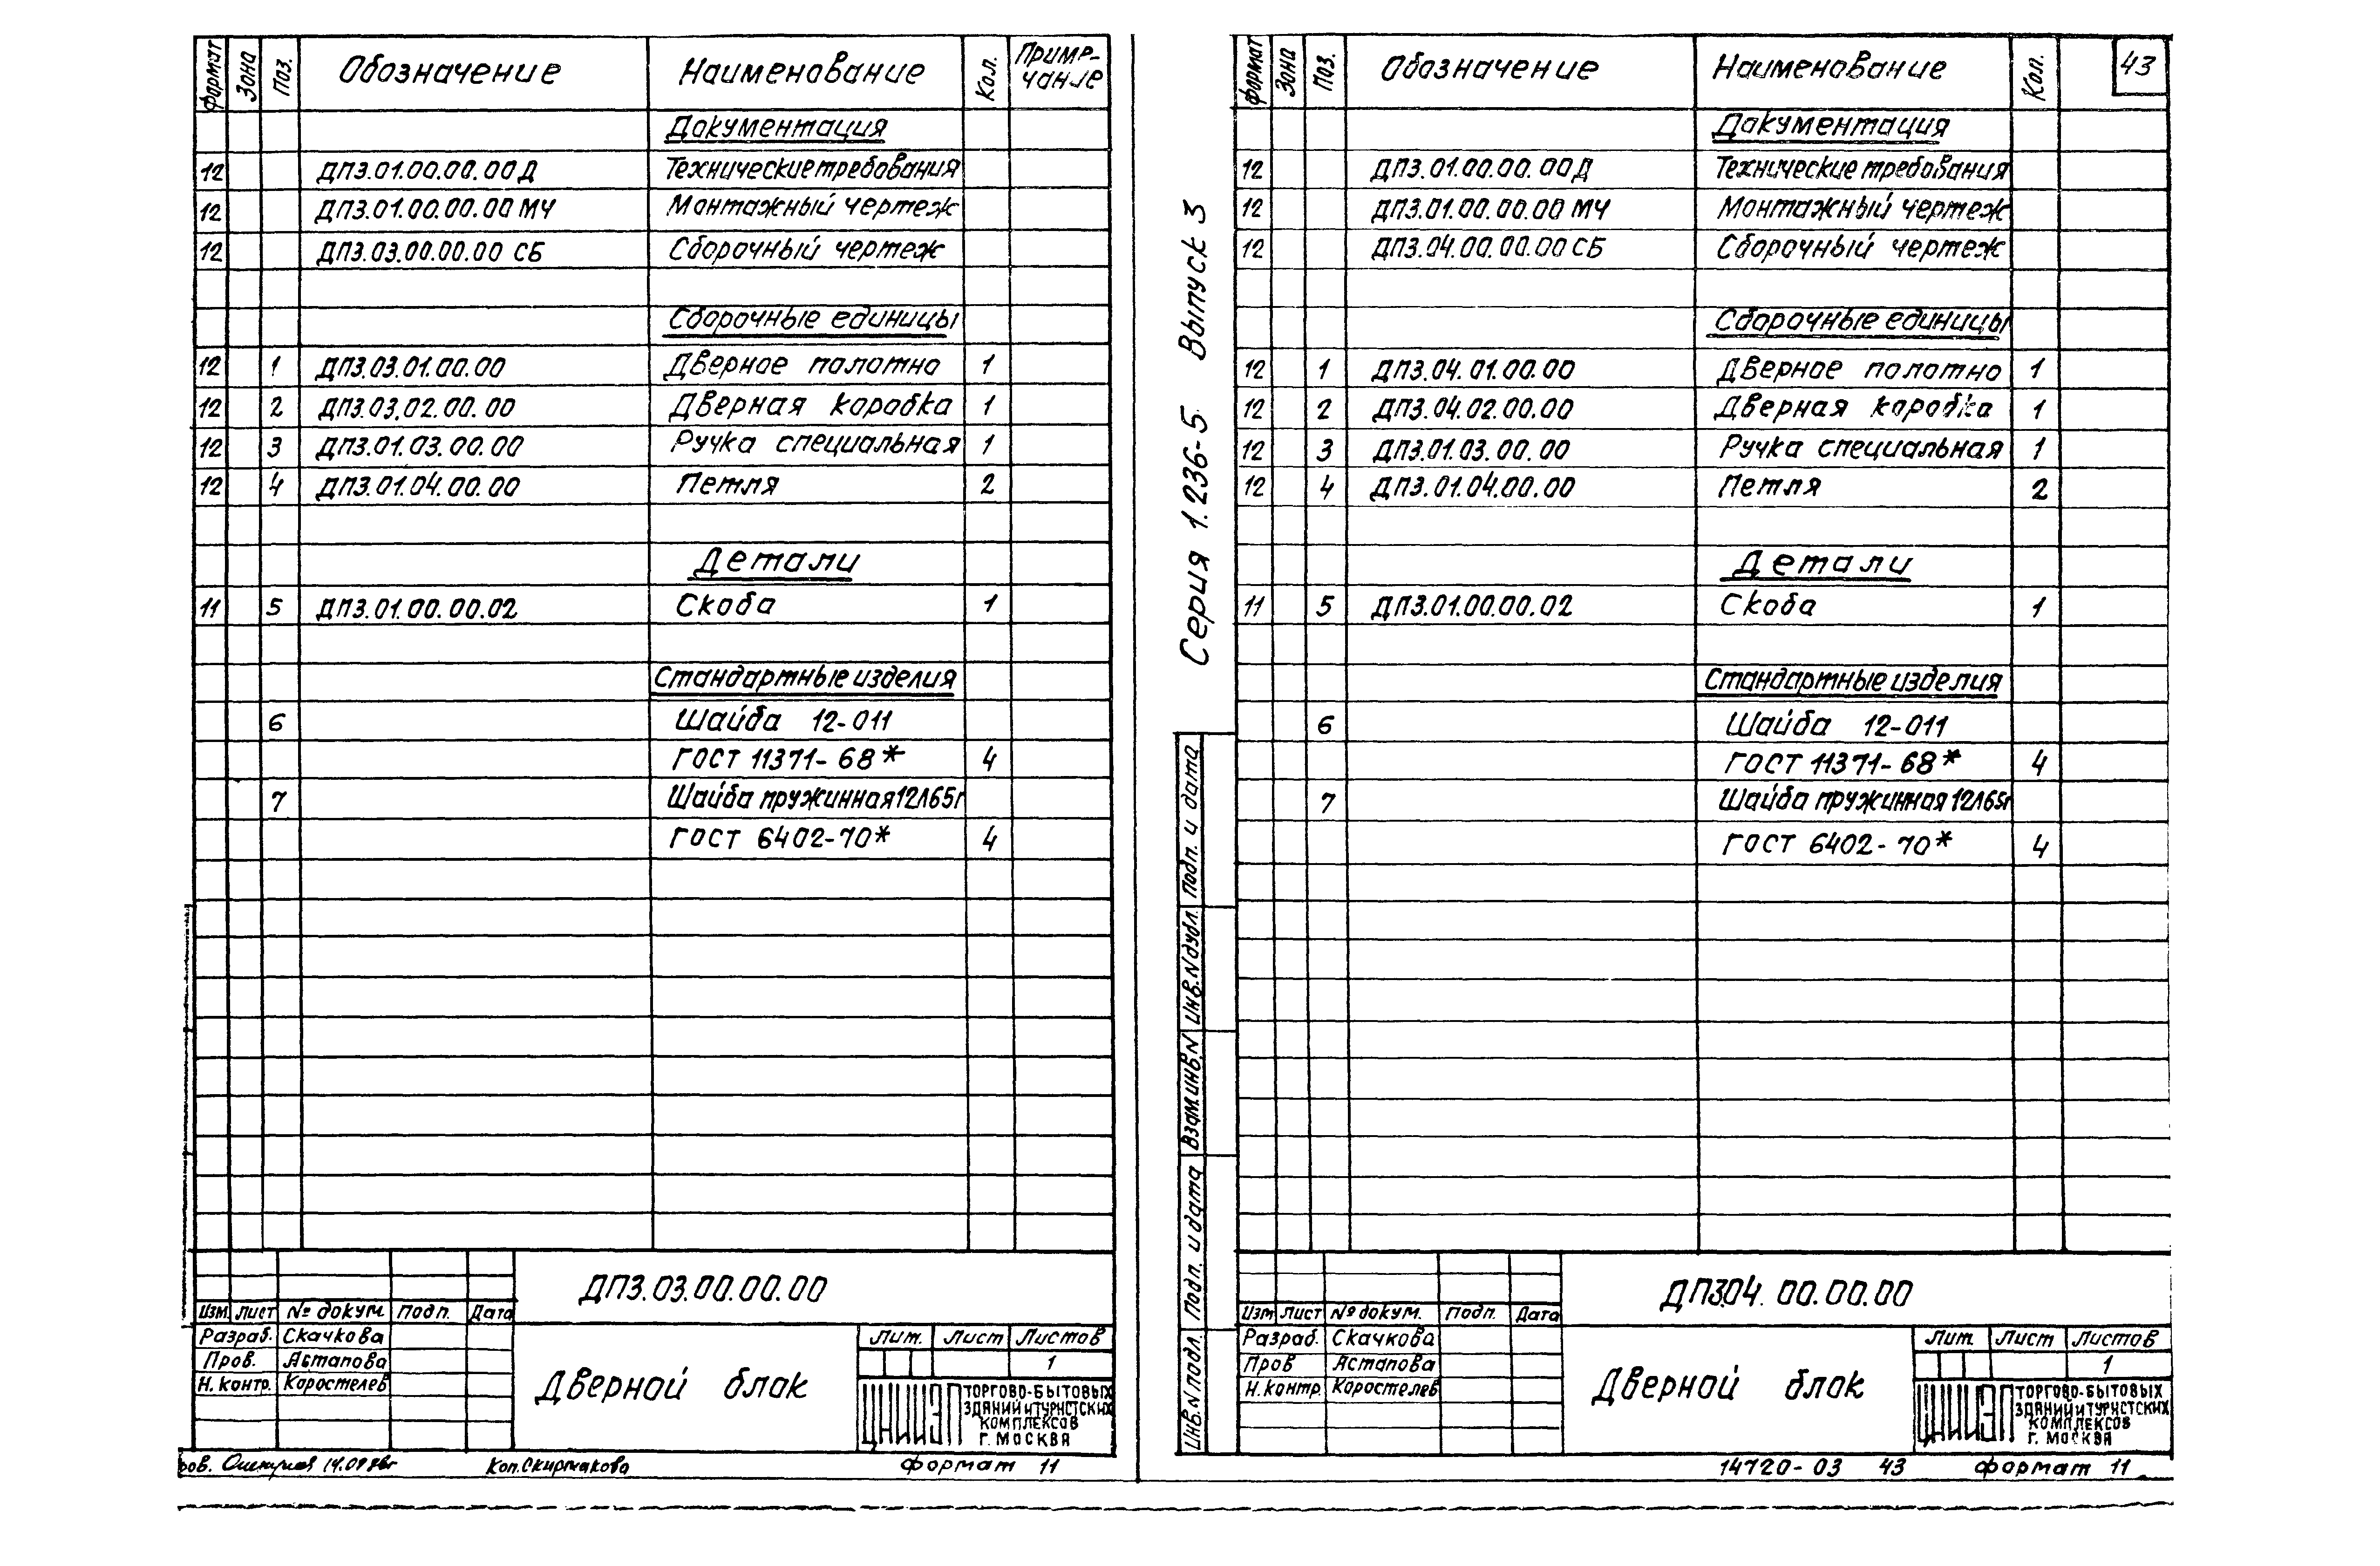 Формат Зона Поз. Обозначение Наименование Кол. Примечание
Документация
12 ДП3.01.00.00.00Д Технические требования
12 ДП3.01.00.00.00 МЧ Монтажный чертеж
12 ДП3.03.00.00.00 СБ Сборочный чертеж
Сборочные единицы
12 1 ДП3.03.01.00.00 Дверное полотно 1
12 2 ДП3.03.02.00.00 Дверная коробка 1
12 3 ДП3.01.03.00.00 Ручка специальная 1
12 4 ДП3.01.04.00.00 Петля 2
Детали
11 5 ДП3.01.00.00.02 Скоба 1
Стандартные изделия
6 Шайба 12-011
ГОСТ 11371-68* 4
7 Шайба пружинная 12Л65Г
ГОСТ 6402-70* 4
ДП3.03.00.00.00
Изм. Лист № докум. Подп. Дата
Разраб. Скачкова
Пров. Астапова
Н. контр. Коростелев
Дверной блок
Лит. Лист Листов
1
ЦНИИЭП
ТОРГОВО-БЫТОВЫХ
ЗДАНИЙ И ТУРИСТСКИХ
КОМПЛЕКСОВ
Г. МОСКВА
Коп. Скирмакова
Формат 11
Серия 1.236-5 Выпуск 3
Формат Зона Поз. Обозначение Наименование Кол. 43
Документация
12 ДП3.01.00.00.00Д Технические требования
12 ДП3.01.00.00.00 МЧ Монтажный чертеж
12 ДП3.04.00.00.00 СБ Сборочный чертеж
Сборочные единицы
12 1 ДП3.04.01.00.00 Дверное полотно 1
12 2 ДП3.04.02.00.00 Дверная коробка 1
12 3 ДП3.01.03.00.00 Ручка специальная 1
12 4 ДП3.01.04.00.00 Петля 2
Детали
11 5 ДП3.01.00.00.02 Скоба 1
Стандартные изделия
6 Шайба 12-011
ГОСТ 11371-68* 4
7 Шайба пружинная 12Л65Г
ГОСТ 6402-70* 4
Инв.N подл. Подп. и дата Взам.инв.N Инв.N дубл. Подп. и дата
ДП3.04.00.00.00
Изм Лист № докум. Подп. Дата
Разраб. Скачкова
Пров Астапова
Н. контр. Коростелев
Дверной блок
Лит. Лист Листов
1
ЦНИИЭП
ТОРГОВО-БЫТОВЫХ
ЗДАНИЙ И ТУРИСТСКИХ
КОМПЛЕКСОВ
Г. МОСКВА
14720-03 43 Формат 11